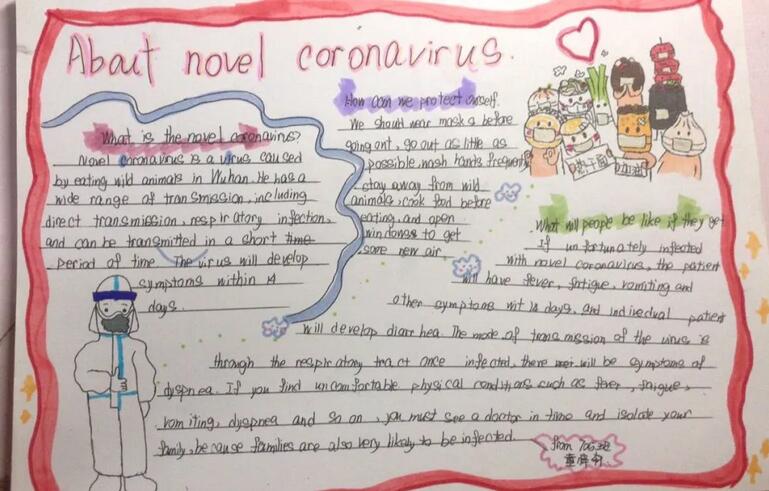 About novel coronavirus.
What is the novel coronavirus?
Novel coronavirus is a virus caused
by eating wild animals in Wuhan. He has a
wide range of transmission, including
direct transmission, respiratory infection,
and can be transmitted in a short time
period of time. The virus will develop
symptoms within 14
days.
How can we protect
We should wear masks before
going out, go out as little as
possible, wash hands frequently
stay away from wild
animals, cook food before
eating, and open
windows to get
some new air.
热干面
加油
What will people be like if they get
If unfortunately infected
with novel coronavirus, the patient
will have fever, fatigue, vomiting and
other symptoms wit 14 days, and indivedual patient
will develop diarrhea. The mode of transmission of the virus is
through the respiratory tract once infected, there will be symptoms of
dyspnea. If you find uncomfortable physical conditions such as fever, faigue,
vomiting, dyspnea and so on, you must see a doctor in time and isolate your
family, because families are also very likely to be infected.
from 706班